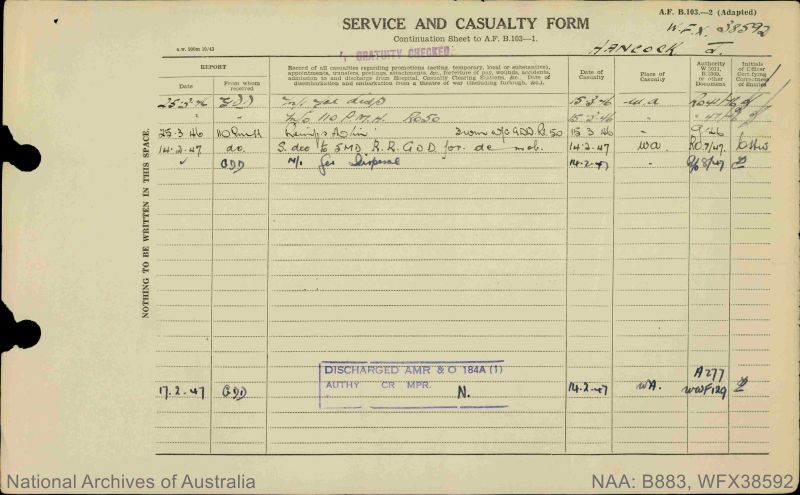 A.F. B.103.—2 (Adapted)
SERVICE AND CASUALTY FORM
W.F.X. 38592
Continuation Sheet to A.F. B.103—1.
GRATUITY CHECKED
HANCOCK J.
REPORT
Date
From whom received
Record of all casualties regarding promotions (acting, temporary, local or substantive), appointments, transfers, postings, attachments, &c., forfeiture of pay, wounds, accidents, admission to and discharge from Hospital, Casualty Clearing Stations, &c. Date of disembarkation and embarkation from a theatre of war (including furlough, &c.).
Date of Casualty
Place of Casualty
Authority W.3011, B.2069, or other Document
Initials of Officer Certifying Correctness of Entries
25 3 46 GDD M/I disp 15 3 46 W.A
M/O 110 P.M.H. Ro50 15 3 46
25.3.46 110 PMH from GDD Ro 50 15 3 46
14.2.47 do. S. dec to 5MD R.R. GDD for de mob. 14.2.47 WA
GDD M/I for Disposal 14.2.47
NOTHING TO BE WRITTEN IN THIS SPACE.
DISCHARGED AMR & O 184A (1)
AUTHY CR MPR. N.
17.2.47 GDD 14.2.47 WA. A277
National Archives of Australia
NAA: B883, WFX38592